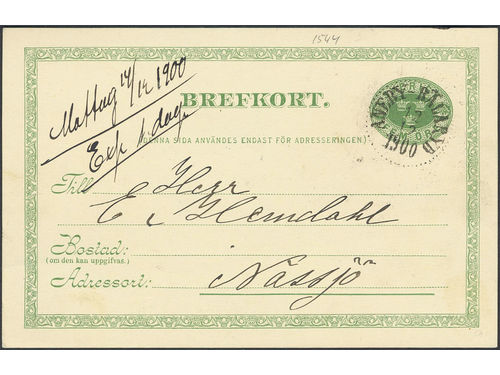 1544
Mottag 14/12 1900
Exp. s. dag.
BREFKORT.
(DENNA SIDA ANVÄNDES ENDAST FÖR ADRESSERINGEN)
1900
Till Herr
E. Hemdahl
Bostad:
(om den kan uppgifvas.)
Adressort: Nässjö